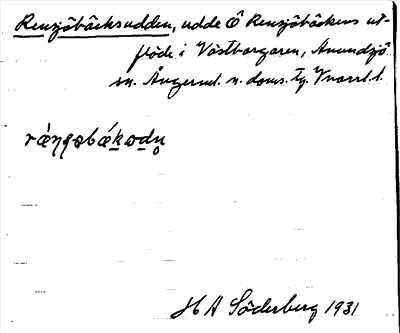 Rensjöbäcksudden, udde Ö Rensjöbäckens ut-
flöde i Västborgaren, Anundsjö
sn. Ångerml. n. doms. tg. V norrl. l.
H A Söderberg 1931